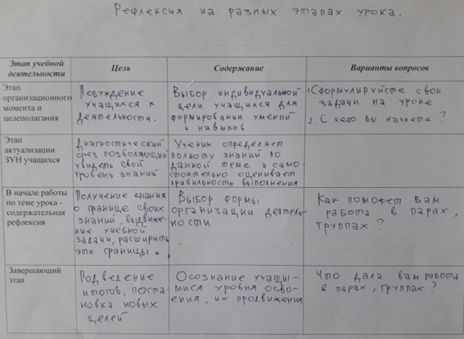 Рефлексия на разных этапах урока.
Этап учебной деятельности
Цель
Содержание
Варианты вопросов
Этап
организационного
момента и
целеполагания
Побуждение
учащихся к
деятельности.
Выбор индивидуальной
цели учащихся для
формирования умений
и навыков
1. Сформулируйте свои
задачи на уроке
2. С чего вы начнете?
Этап
актуализации
ЗУН учащихся
Диагностический
срез позволяющий
увидеть свой
уровень знаний
Ученик определяет
полноту знаний по
данной теме и само-
стоятельно оценивает
правильность выполнения
В начале работы
по теме урока -
содержательная
рефлексия
Получение знания
о границе своих
знаний, выдвиже-
ние учебной
задачи, расширить
эти границы.
Выбор формы
организации деятель-
ности
Как поможет вам
работа в парах,
группах?
Завершающий
этап
Подведение
итогов, поста-
новка новых
целей
Осознание учащи-
мися уровня осво-
ения, их продвижения
Что дала вам работа
в парах, группах?